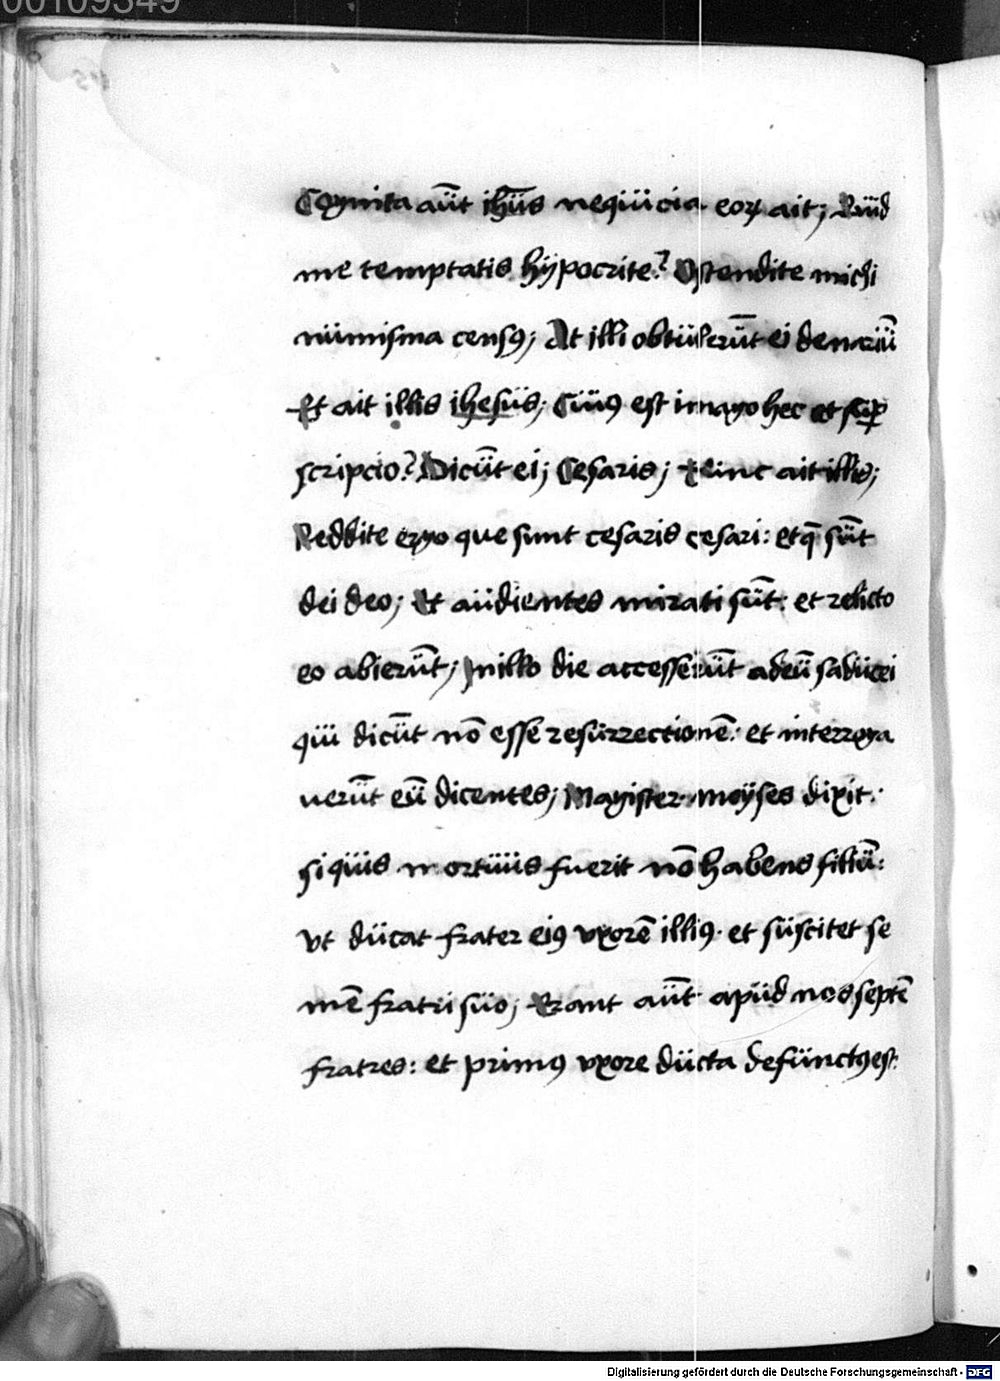 00109349
Cognita aūt ihūs neqüicia eoꝝ ait; Qüid
me temptatis hÿpocrite? Ostendite michi
nümisma censꝰ; At illi obtülerūt ei denariū
Et ait illis ihesüs; Cüiꝰ est imago hec et suꝑ
scripcio? Dicūt ei; Cesaris; Tünc ait illis;
Reddite ergo que sunt cesaris cesari: et q̄ sūt
dei deo; Et aüdientes mirati sūt: et relicto
eo abierūt; In illo die accesserūt ad eū sadücei
qüi dicūt nō esse resürrectionē: et interroga
uerūt eū dicentes; Magister moÿses dixit:
si qüis mortüüs fuerit nō habens filiū:
vt dücat frater eiꝰ vxorē illiꝰ et süscitet se
mē fratri süo; Erant aūt apüd nos septē
fratres: et primꝰ vxore dücta defünctꝰ est:
Digitalisierung gefördert durch die Deutsche Forschungsgemeinschaft - DFG